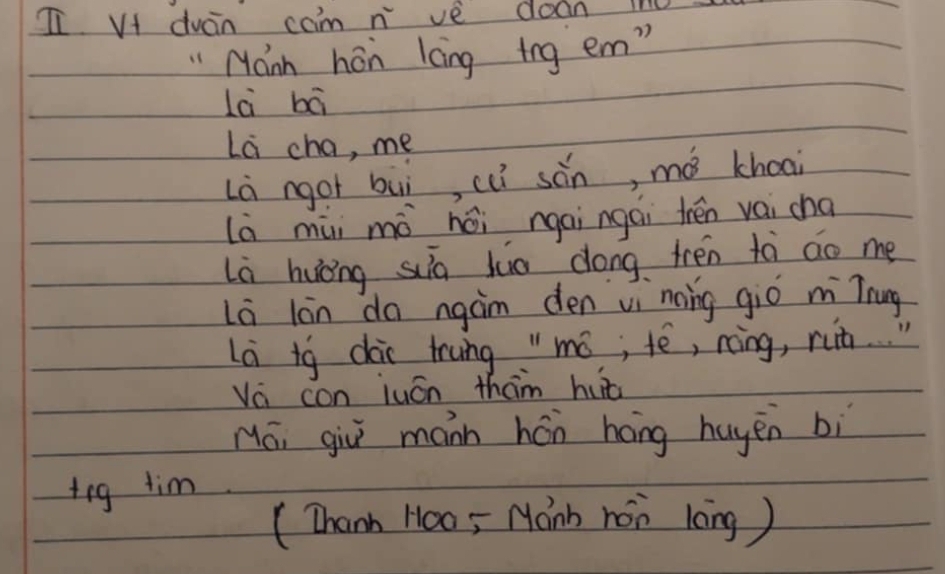 II. Vt đvăn cảm n về đoạn thơ sau
"Mảnh hồn làng trg em"
Là bà
Là cha, mẹ
Là ngọt bùi, củ sắn, mớ khoai
Là mùi mồ hôi ngai ngái trên vai cha
Là hương sữa lúa đọng trên tà áo mẹ
Là làn da ngăm đen vì nắng gió m Trung
Là tg đặc trưng "mô, tê, răng, rứa..."
Và con luôn thầm hứa
Mãi giữ mảnh hồn hàng huyền bí
trg tim.
(Thanh Hoa - Mảnh hồn làng)